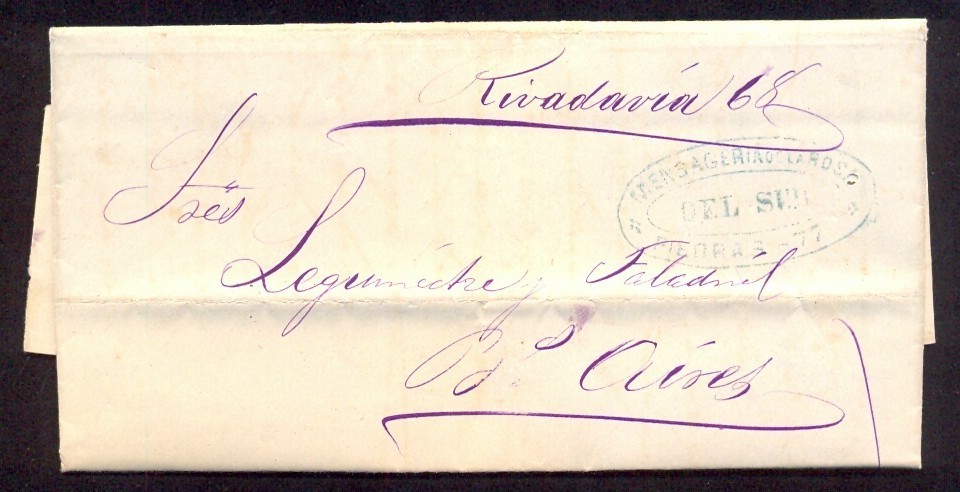 Rivadavia 68
Sres
Legumicke y Saladnel
Bs Aires
MENSAGERIAS
DEL SUD
PIEDRAS - 77